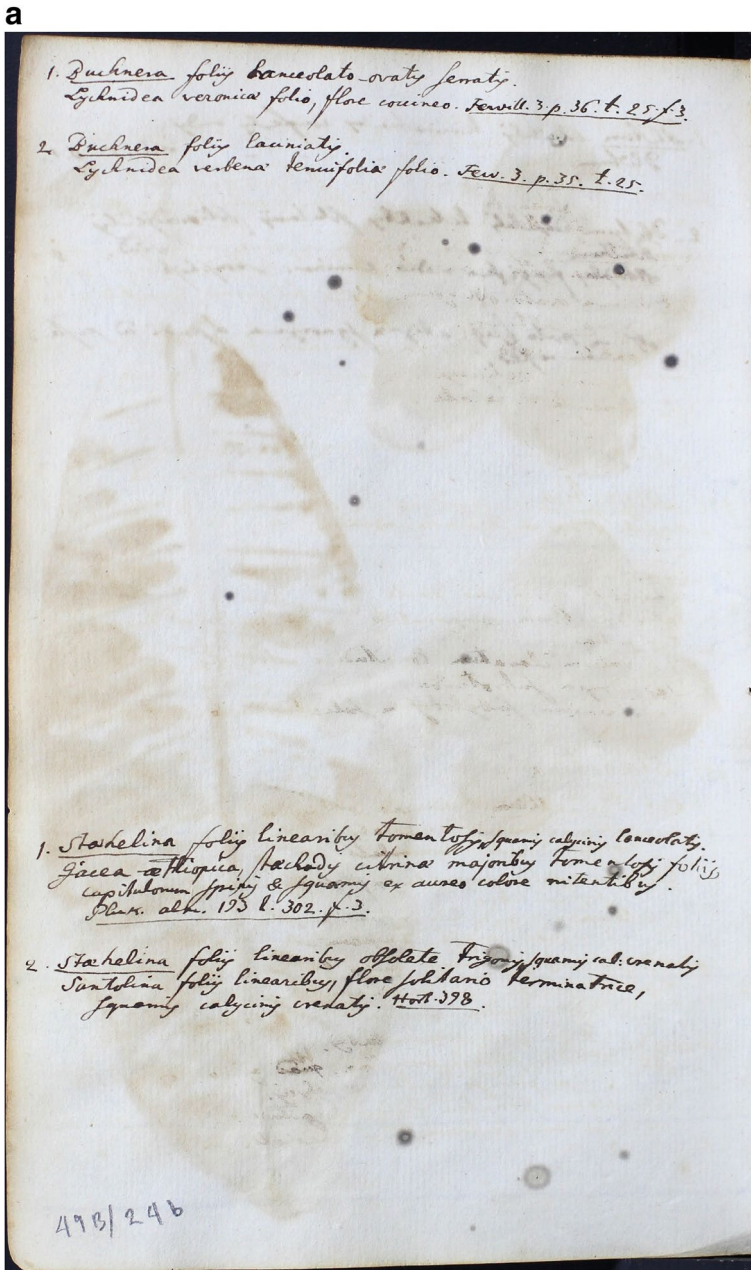 a
1. Buchnera foliis lanceolato-ovatis serratis.
Lychnidea veronicæ folio, flore coccineo. Fewill. 3. p. 36. t. 25. f. 3.
2. Buchnera foliis laciniatis.
Lychnidea verbenæ tenuifoliæ folio. Few. 3. p. 35. t. 25.
1. Stæhelina foliis linearibus tomentosis, squamis calycinis lanceolatis.
Jacea æthiopica, stæchadis citrinæ majoribus tomentosis foliis
capitulorum spinis & squamis ex aureo colore nitentibus.
Pluk. alm. 193 t. 302. f. 3.
2. Stæhelina foliis linearibus obsolete trigonis, squamis cal: crenatis
Santolina foliis linearibus, flore solitario terminatrice,
squamis calycinis crenatis. Hort. 398.
49B/24b